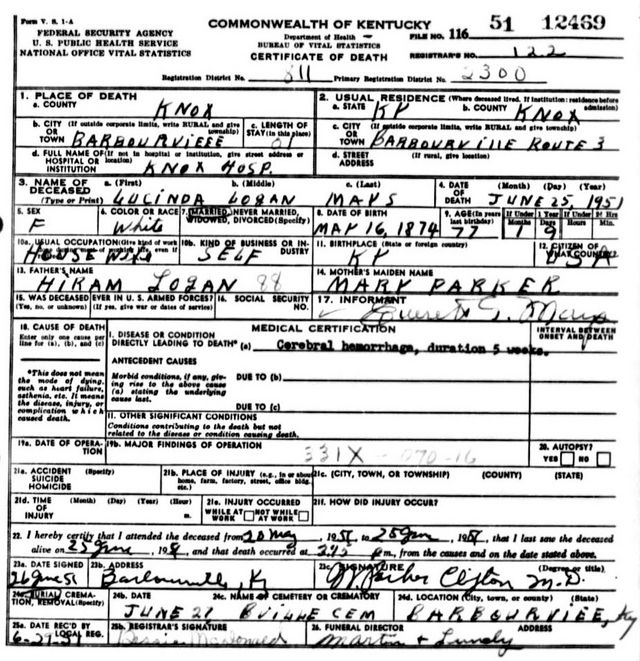 Form V. S. 1-A
FEDERAL SECURITY AGENCY
U. S. PUBLIC HEALTH SERVICE
NATIONAL OFFICE VITAL STATISTICS
COMMONWEALTH OF KENTUCKY
Department of Health
BUREAU OF VITAL STATISTICS
CERTIFICATE OF DEATH
FILE NO. 116 51 12469
REGISTRAR'S NO. 122
Registration District No. 811 Primary Registration District No. 2300
1. PLACE OF DEATH
a. COUNTY KNOX
2. USUAL RESIDENCE (Where deceased lived. If institution: residence before admission)
a. STATE KY b. COUNTY KNOX
b. CITY (If outside corporate limits, write RURAL and give township) OR TOWN BARBOURVIEEE
c. LENGTH OF STAY (in this place)
c. CITY (If outside corporate limits, write RURAL and give township) OR TOWN BARBOURVILLE ROUTE 3
d. FULL NAME OF (If not in hospital or institution, give street address or location) HOSPITAL OR INSTITUTION KNOX HOSP.
d. STREET ADDRESS (If rural, give location)
3. NAME OF DECEASED (Type or Print)
a. (First) LUCINDA b. (Middle) LOGAN c. (Last) MAYS
4. DATE OF DEATH (Month) (Day) (Year) JUNE 25, 1951
5. SEX F
6. COLOR OR RACE White
7. MARRIED, NEVER MARRIED, WIDOWED, DIVORCED (Specify)
8. DATE OF BIRTH MAY 16, 1874
9. AGE (In years last birthday) 77 If Under 1 Year 1 9 If Under 24 Hrs
10a. USUAL OCCUPATION (Give kind of work HOUSE WIFE
10b. KIND OF BUSINESS OR INDUSTRY SELF
11. BIRTHPLACE (State or foreign country) KY
12. CITIZEN OF WHAT COUNTRY? USA
13. FATHER'S NAME HIRAM LOGAN 88
14. MOTHER'S MAIDEN NAME MARY PARKER
15. WAS DECEASED EVER IN U. S. ARMED FORCES? (Yes, no, or unknown) (If yes, give war or dates of service)
16. SOCIAL SECURITY NO.
17. INFORMANT Everett G. Mays
18. CAUSE OF DEATH
Enter only one cause per line for (a), (b), and (c)
*This does not mean the mode of dying, such as heart failure, asthenia, etc. It means the disease, injury, or complication which caused death.
MEDICAL CERTIFICATION
INTERVAL BETWEEN ONSET AND DEATH
I. DISEASE OR CONDITION DIRECTLY LEADING TO DEATH* (a) Cerebral hemorrhage, duration 5 weeks.
ANTECEDENT CAUSES
Morbid conditions, if any, giving rise to the above cause (a) stating the underlying cause last.
DUE TO (b)
DUE TO (c)
II. OTHER SIGNIFICANT CONDITIONS
Conditions contributing to the death but not related to the disease or condition causing death.
19a. DATE OF OPERATION
19b. MAJOR FINDINGS OF OPERATION
331X - 070-16
20. AUTOPSY? YES NO
21a. ACCIDENT SUICIDE HOMICIDE (Specify)
21b. PLACE OF INJURY (e.g., in or about home, farm, factory, street, office bldg. etc.)
21c. (CITY, TOWN, OR TOWNSHIP) (COUNTY) (STATE)
21d. TIME OF INJURY (Month) (Day) (Year) (Hour) m.
21e. INJURY OCCURRED WHILE AT WORK NOT WHILE AT WORK
21f. HOW DID INJURY OCCUR?
22. I hereby certify that I attended the deceased from 20 May, 1951, to 25 June, 1951, that I last saw the deceased
alive on 25 June, 1951, and that death occurred at m., from the causes and on the date stated above.
23a. DATE SIGNED 26 June 51
23b. ADDRESS Barbourville, Ky
23c. SIGNATURE Parker Clifton M.D. (Degree or title)
24a. BURIAL, CREMATION, REMOVAL (Specify)
24b. DATE JUNE 27
24c. NAME OF CEMETERY OR CREMATORY BVILLE CEM
24d. LOCATION (City, town, or county) (State) BARBOURVIEE, Ky
25a. REC'D BY LOCAL REG. 6-29-51
25b. REGISTRAR'S SIGNATURE Bessie McDonald
26. FUNERAL DIRECTOR ADDRESS
Martin + Lundy